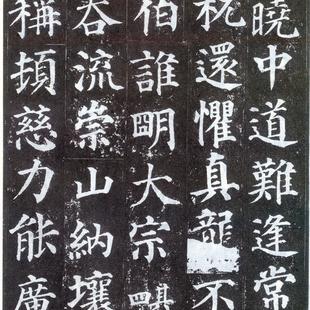 曉中道難逢常
枕還懼真龍不
伯誰明大宗其四
吞流崇山納壤
稱頓慈力能廣